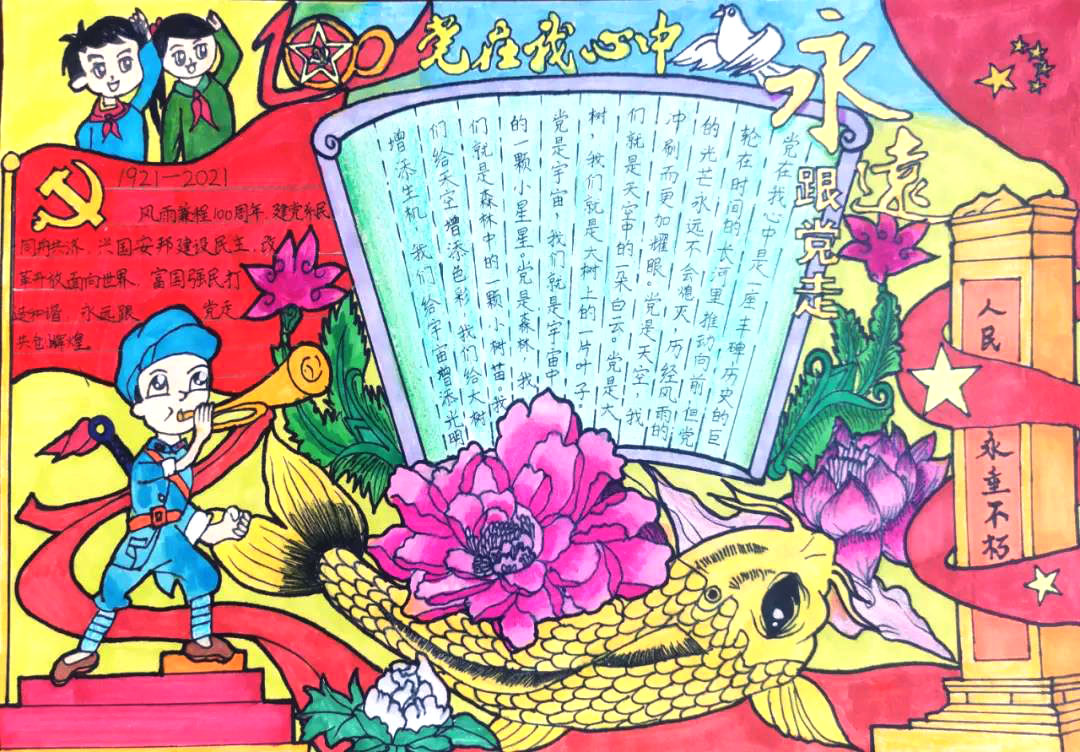 100
党在我心中
永遠
跟党走
1921—2021
风雨兼程100周年，建党为民
同舟共济，兴国安邦建设民主，改
革开放面向世界，富国强民打
造和谐，永远跟 党走
共创辉煌
党在我心中是一座丰碑，历史的巨
轮在时间的长河里推动向前，但党
的光芒永远不会熄灭，历经风雨的
冲刷而更加耀眼。党是天空，我
们就是天空中的一朵白云。党是大
树，我们就是大树上的一片叶子
党是宇宙，我们就是宇宙中
的一颗小星星。党是森林，我
们就是森林中的一颗小树苗。我
们给天空增添色彩，我们给大树
增添生机，我们给宇宙增添光明
人民
永垂不朽